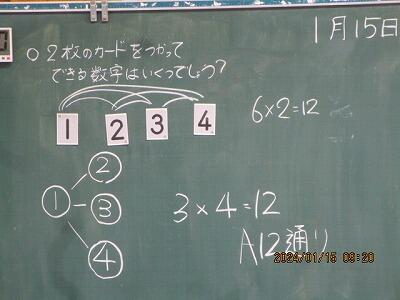 1月15日
○ 2枚のカードをつかって
できる数字はいくつでしょう?
1 2 3 4
6×2=12
① ② ③ ④
3×4=12
A 12通り
2024/01/15 09:20